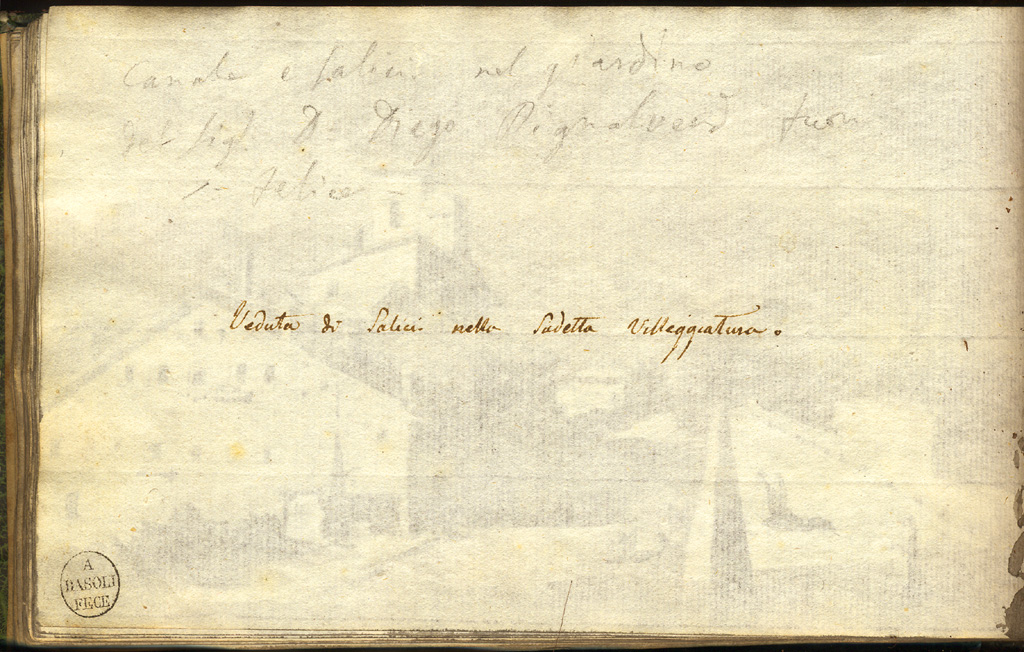 Canale e Salici nel giardino
del Sig. D. Diego Pignalverd fuori
S. Felice
Veduta di Salici nella Sudetta Villeggiatura.
A
BASOLI
FECE